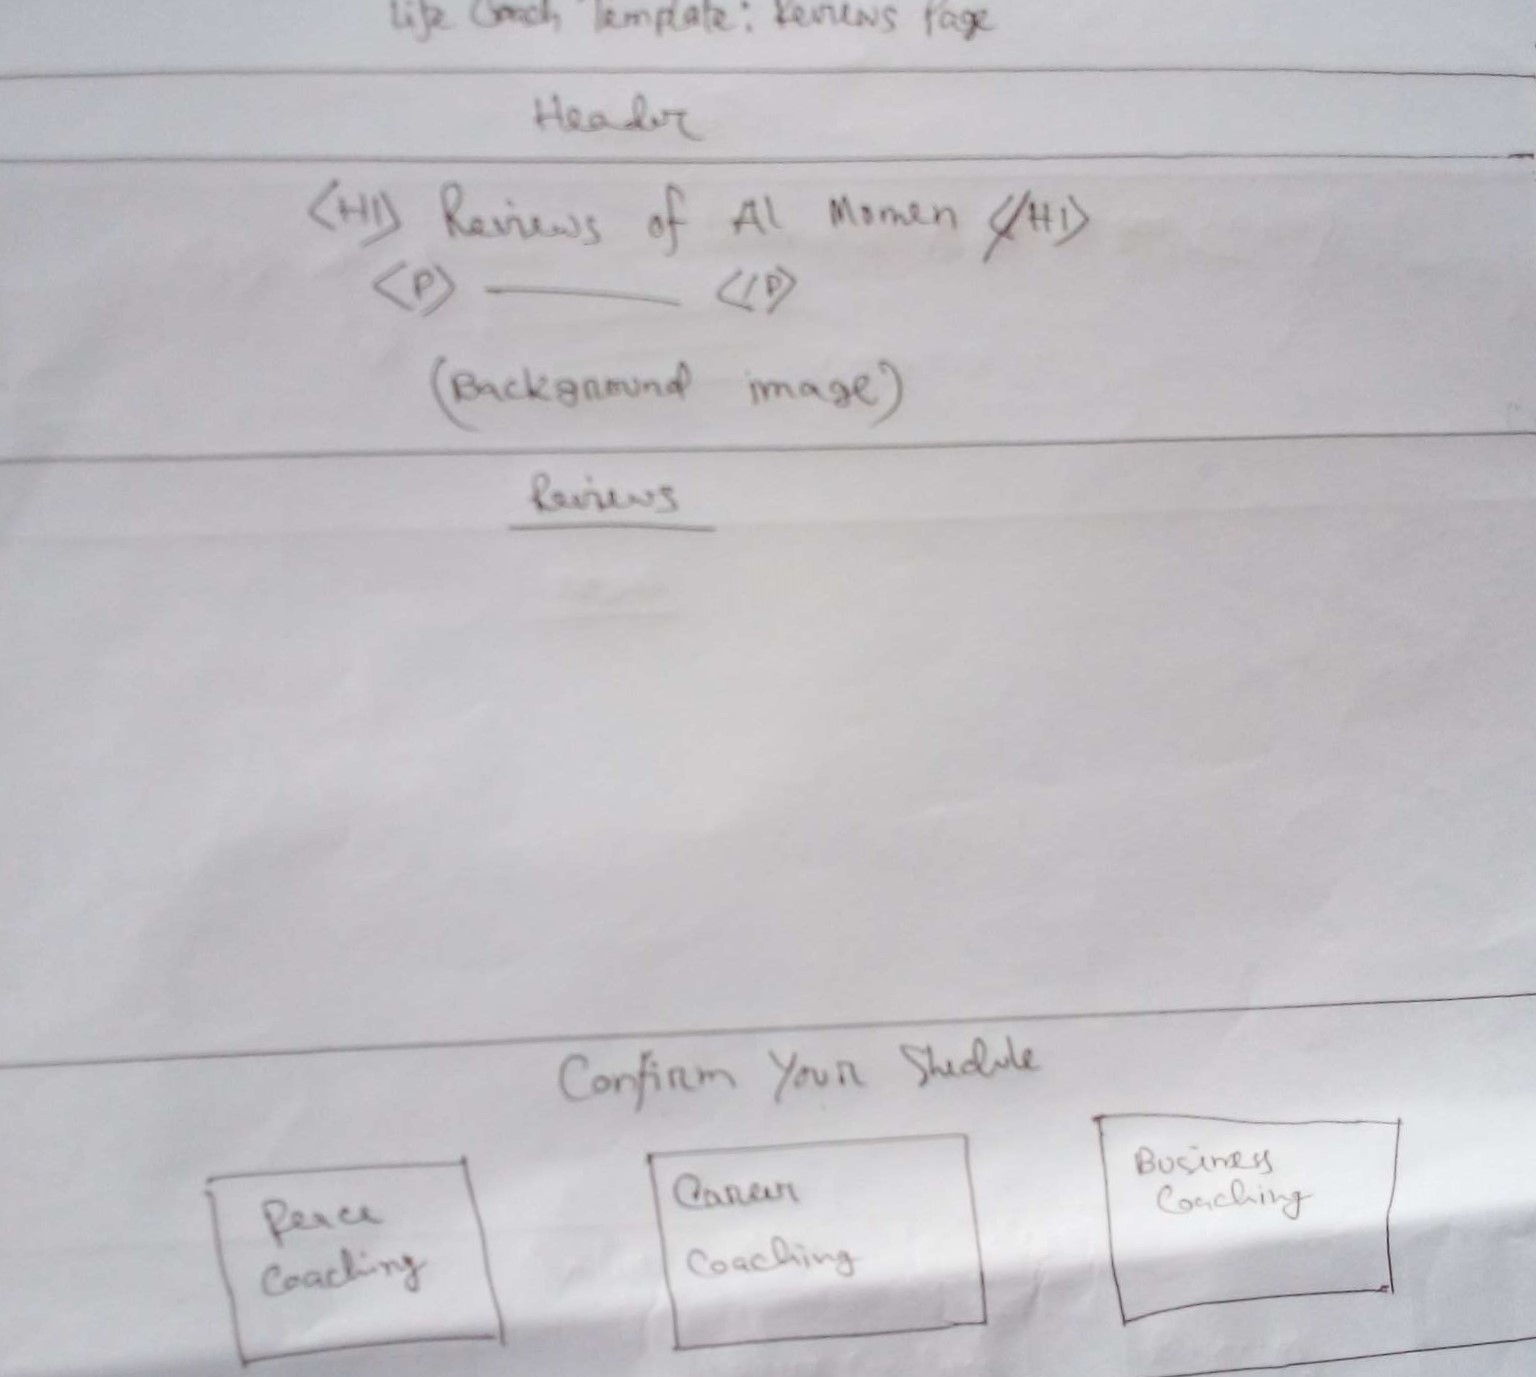 Life Coach Template: Reviews Page
Header
<H1> Reviews of Al Momen </H1>
<P> —— </P>
(Background image)
Reviews
Confirm Your Shedule
Peace
Coaching
Career
Coaching
Business
Coaching